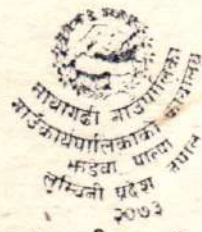 माथागढी गाउँपालिका
गाउँकार्यपालिकाको कार्यालय
झडेवा पाल्पा
लुम्बिनी प्रदेश नेपाल
२०७३